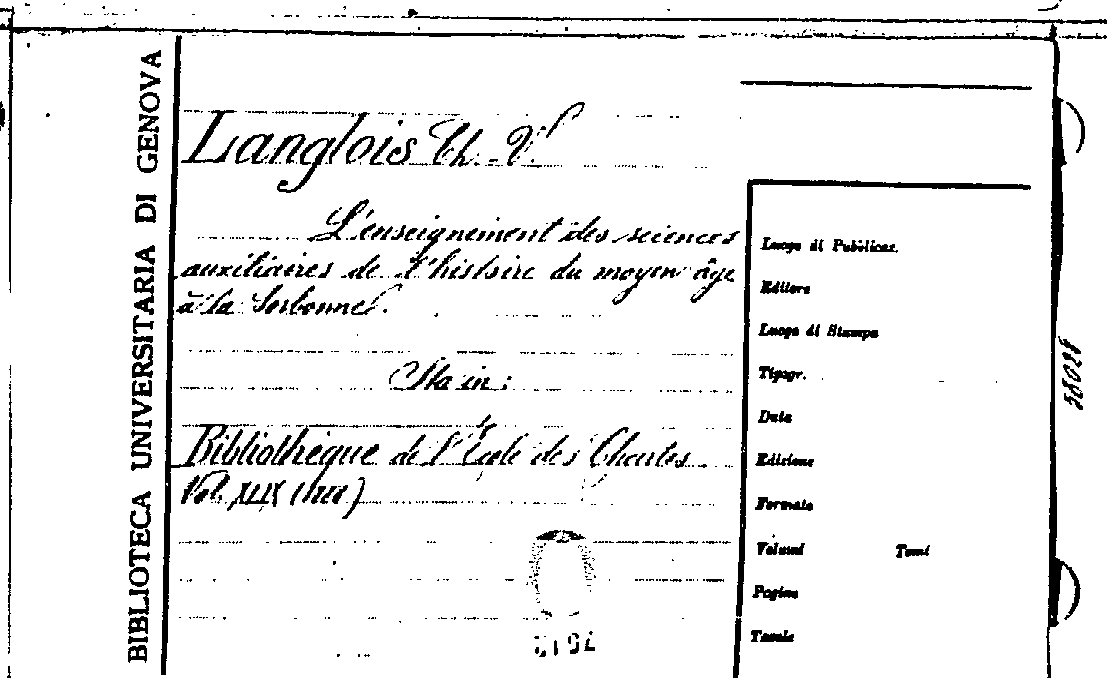 BIBLIOTECA UNIVERSITARIA DI GENOVA
Langlois Ch. V.
L'enseignement des sciences
auxiliaires de l'histoire du moyen âge
à la Sorbonne.
Sta in:
Bibliothèque de l'École des Chartes
Vol. XLIX (1888)
Luogo di Pubblicaz.
Editore
Luogo di Stampa
Tipogr.
Data
Edizione
Formato
Volumi Tomi
Pagine
Tavole